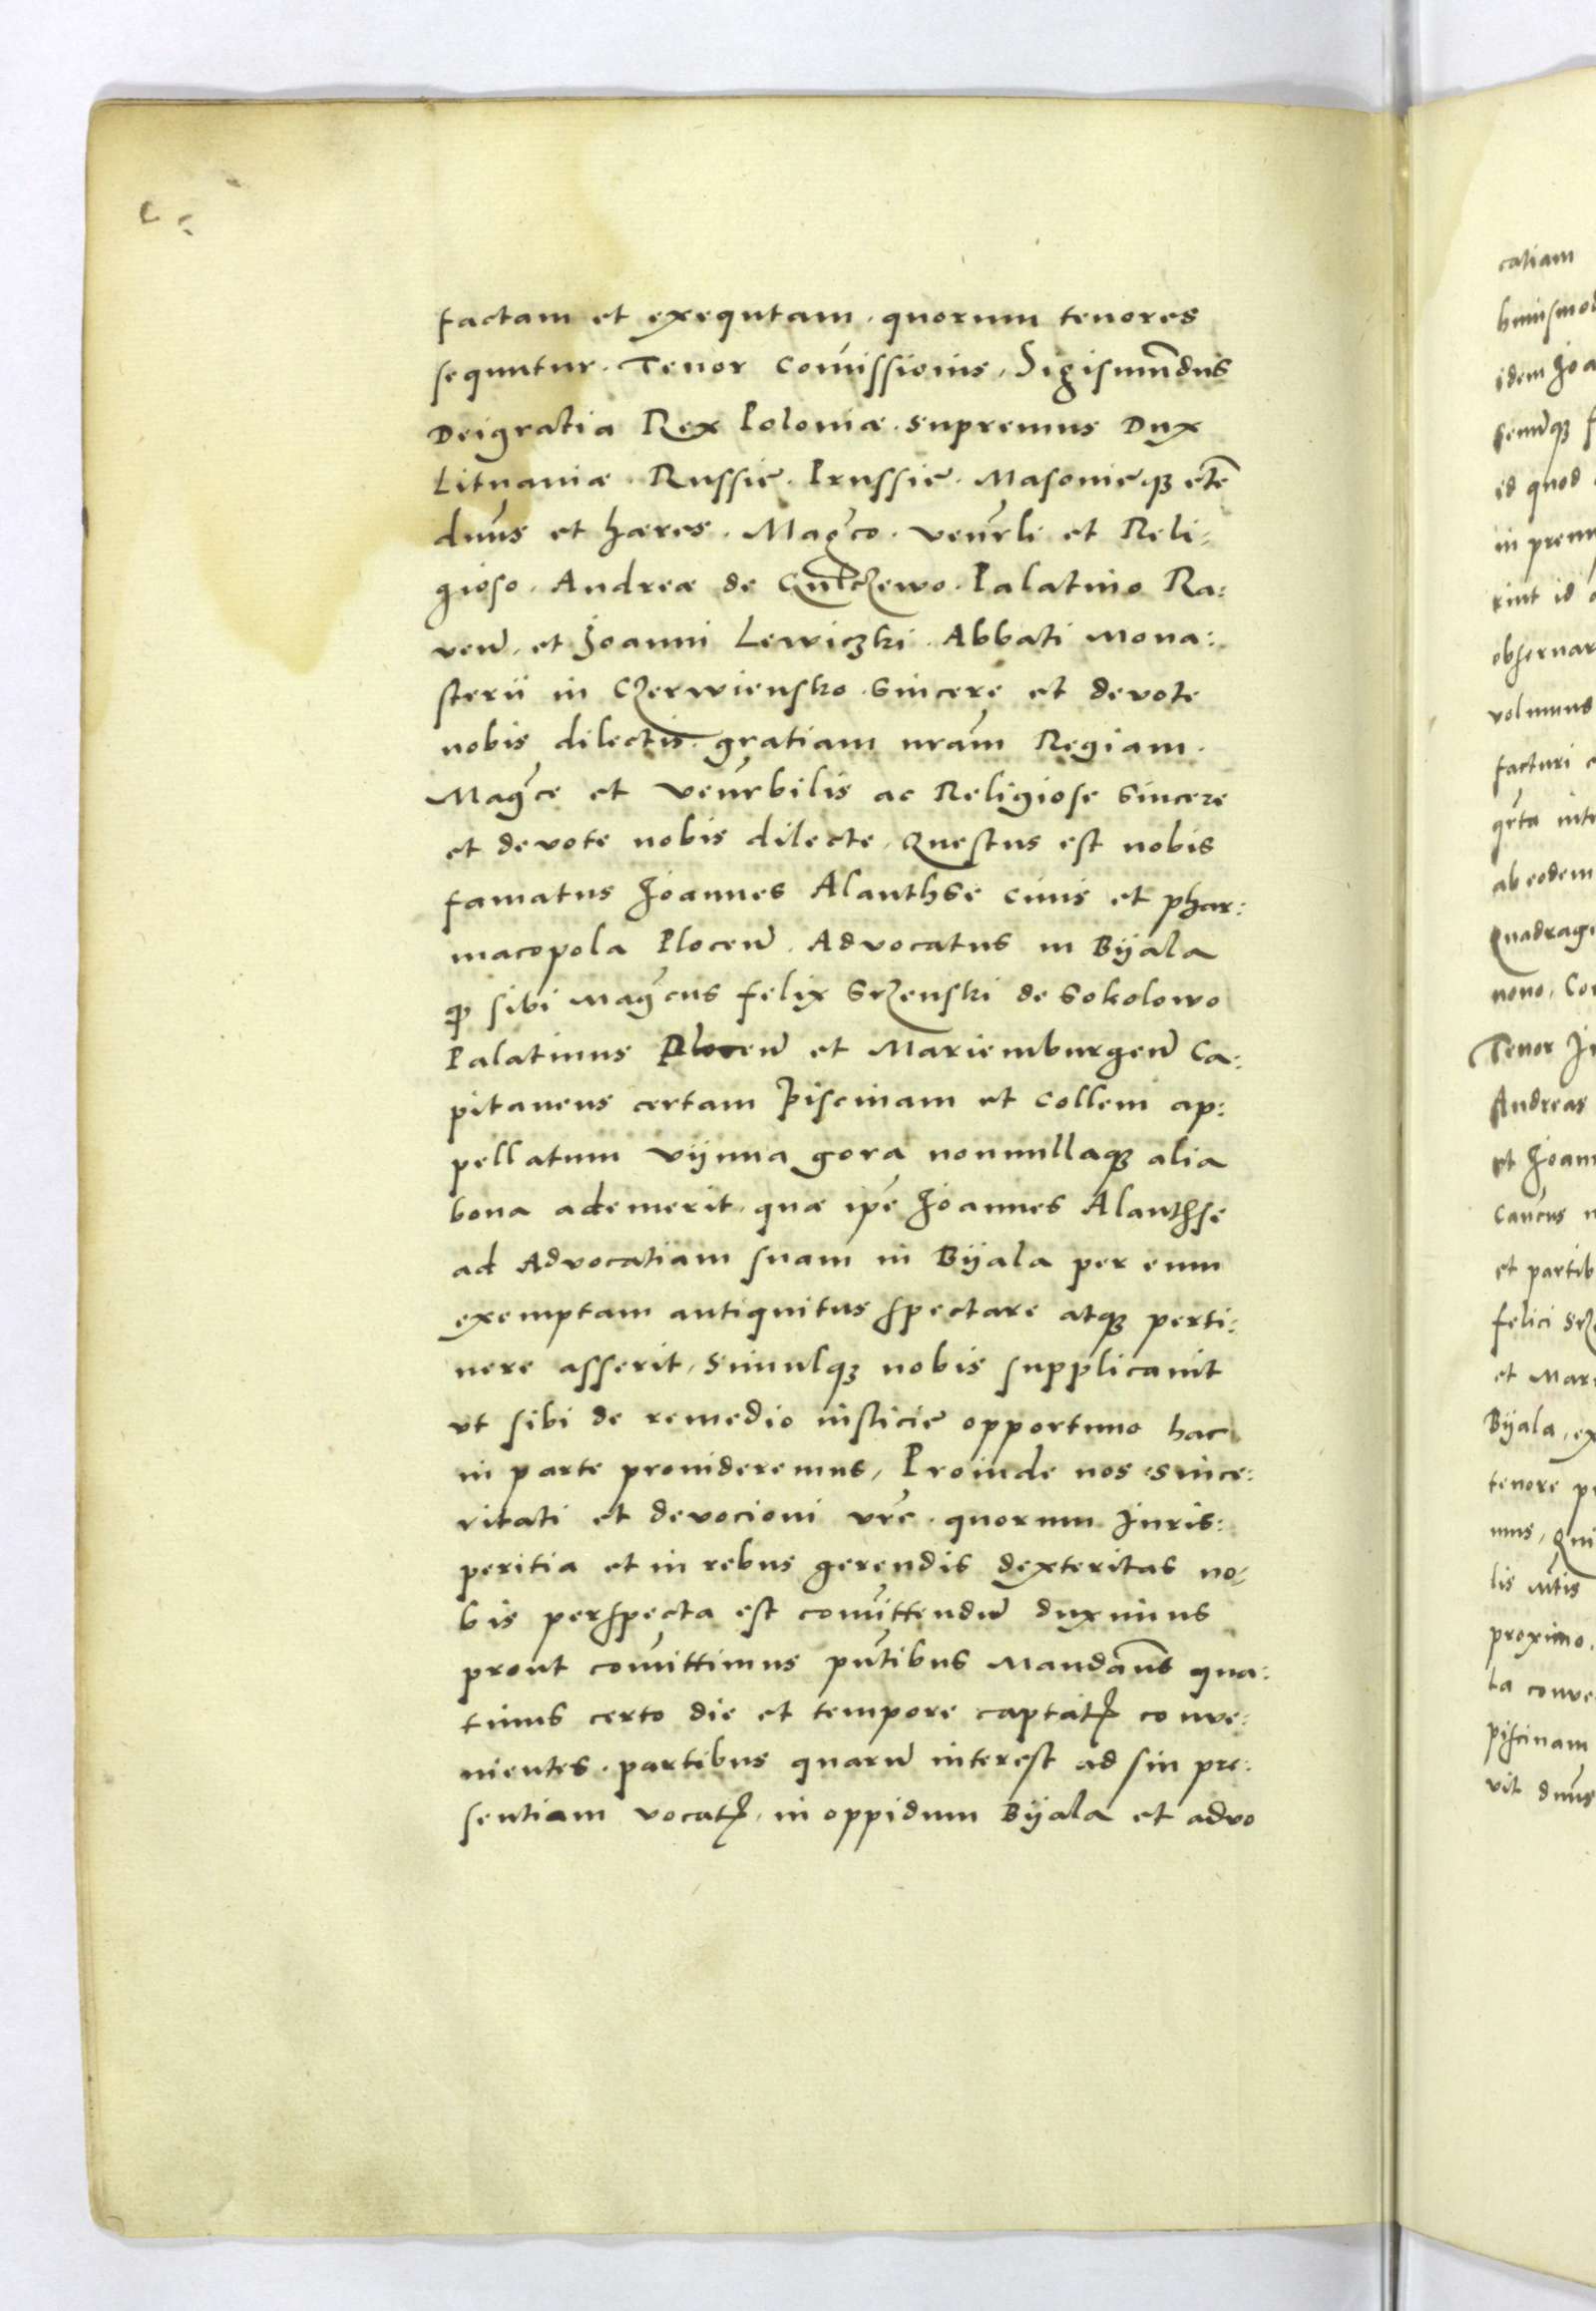 factam et exequtam. quorum tenores
sequntur. Tenor Com̃issionis, Sigismũdus
Deigratia Rex Poloniæ. supremus Dux
Lituaniæ. Russie. Prussie. Masonieqȝ etc̃
dñus et hæres. Mag̃co. Veñrli et Reli:
gioso. Andreæ de Palatino Ra:
ven̄. et Joanni Lewiczki. Abbati Mona:
sterii in Czerwiensko. sincere et devote
nobis dilectis. gratiam nr̃am Regiam.
Mag̃ce et veñrbilis ac Religiose sincere
et devote nobis dilecte, Questus est nobis
famatus Joannes Alanthse ciuis et phar:
macopola Plocen̄. Advocatus in Bÿala
qꝫ sibi mag̃cus felix Srzenski de Sokolowo
Palatinus Plocen̄ et Mariemburgen̄ Ca:
pitaneus certam piscinam et collem ap:
pellatum vÿnna gora nonnullaqȝ alia
bona ademerit. quæ ip̃e Joannes Alanthse
ad Advocatiam suam in Bÿala per eum
exemptam antiquitus spectare atqȝ perti:
nere asserit, Simulqȝ nobis supplicauit
ut sibi de remedio iusticie opportuno hac
in parte prouideremus, Proinde nos since:
ritati et devocioni vr̃e. quorum Juris:
peritia et in rebus gerendis dexteritas no:
bis perspecta est com̃ittendū duximus
prout com̃ittimus pñtibus Mandañs qua:
tinus certo die et tempore captatꝭ conve:
nientes. partibus quarū interest ad sui pre:
sentiam vocatꝭ. in oppidum Bÿala et advo
catiam
idem Joa
id quod
rint id
obseruar
volumus
facturi
ab eodem
Quadragi
nono. Con
Tenor
Andreas
et Joann
et partib
felici Srz
et Mari
Bÿala, ex
tenore
mus, Qui
proximo.
ta conve
piscinam
vit dñus